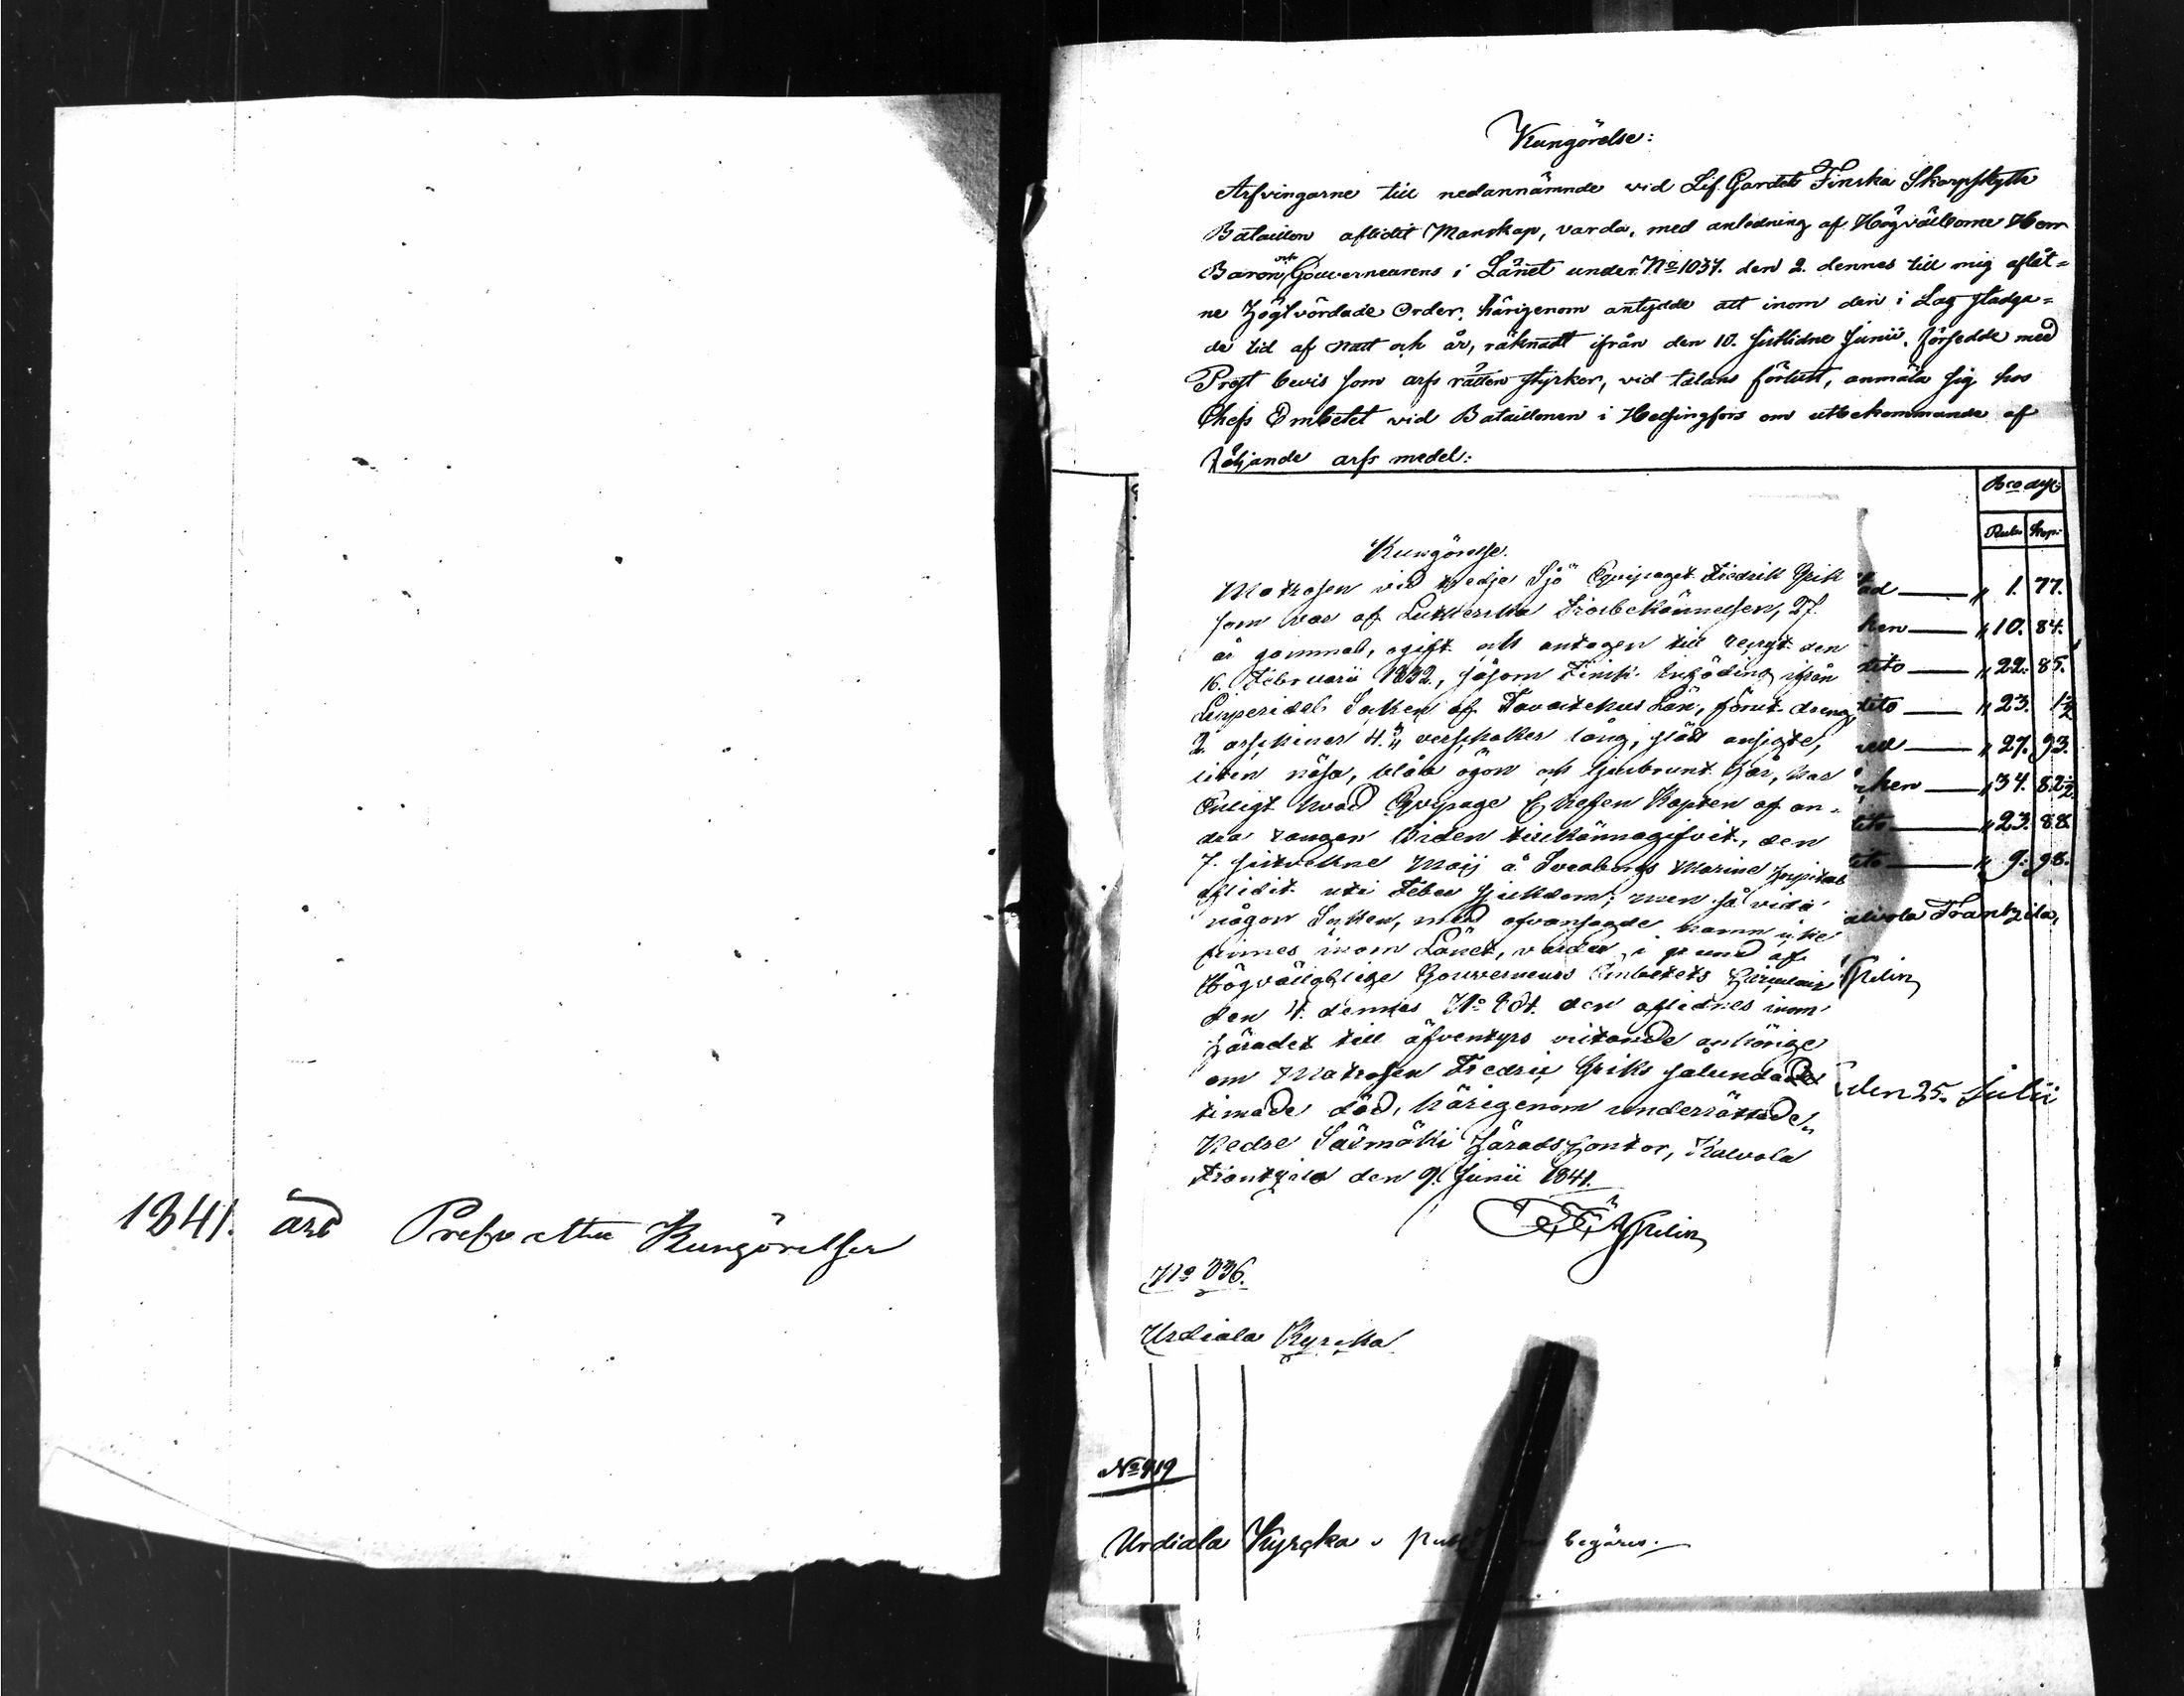 1841. års Prefvette Kungörelser
Kungörelse:
Arfvingarne till nedannämnde vid Lif Gardets Finska Skarpskytte
Bataillon aflidit Manskap, varda, med anledning af Högvälborne Herr
Baron och Gouverneurens i Länet under No 1037. den 2. dennes till mig aflåt=
ne Högtvördade Order, härigenom antydde att inom den i Lag stadga=
de tid af natt och år, räknadt ifrån den 10. sistlidne Junii, försedde med
Prest bevis som arfs rätten styrker, vid talans förlust, anmäla sig hos
Chefs Embetet vid Bataillonen i Helsingfors om utbekommande af
följande arfs medel:
Bco ass:
Rub: Kop:
ad — " 1. 77.
ken — " 10. 84.
dito — " 22. 85.
dito — " 23. 1½
" 27. 93.
ken — " 34. 82½
dito — " 23. 88.
dito — " 9. 98.
Frantzila,
den 25. Julii
Kungörelse.
Matrosen vid tredje Sjö Equipaget Fredrik Grik
som var af Lutherska Trosbekännelsen, 27
år gammal, ogift och antagen till recryt den
16. Februarii 1832, såsom Finsk inföding ifrån
Socken af Tavastehus Län, förut dreng,
2 arschiner 4. verschaker lång, slätt ansigte,
liten näsa, blåa ögon och ljusbrunt hår, har
Enligt hvad Eqvipage Chefen Kapten af an-
dra rangen Briden tillkännagifvit, den
7. sistvekne Maij å Sveaborgs Marine Hospital
aflidit uti Feber sjukdom; men så vida
någon Socken, med ofvansagde namn icke
finnes inom Länet, varder i grund af
Högvällofliga Gouverneurs Embetets Circulair
den 4. dennes No den aflidnes inom
Häradet till äfventyrs vistande anhörige
om Matrosen Fredric Griks sålunda
timade död, härigenom underrättade.
Nedre Sääxmäki Härads Contor, Kalvola
Frantzila den 9. Junii 1841.
No 336.
Urdiala Kyrcka
No 419
Urdiala Kyrcka begäres.